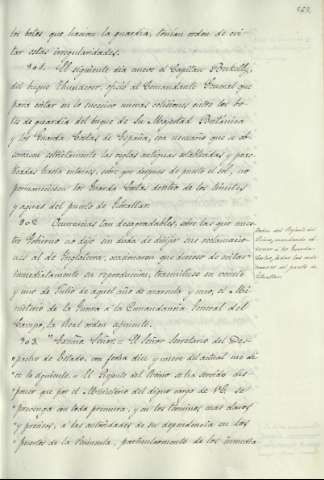 los botes que hacian la guardia, tenian orden de evi-
tar estas irregularidades.
301. El siguiente dia nueve el Capitan
del buque Thunderer, ofició al Comandante General que
para evitar en lo sucesivo nuevas colisiones entre los bo-
tes de guardia del buque de Su Magestad Británica
y los Guarda Costas de España, era necesario que se ob-
servasen estrictamente las reglas antiguas establecidas y prac-
ticadas hasta entonces, sobre que despues de puesto el sol, no
permaneciesen los Guarda Costas dentro de los límites
y aguas del puerto de Gibraltar.
302 Ocurrencias tan desagradables, sobre las que nues-
tro Gobierno no dejó sin duda de dirigir sus reclamacio-
nes al de Inglaterra, ocasionaron que deseoso de evitar
inmediatamente su reproduccion, trasmitiese en veinte
y uno de Julio de aquel año de cuarenta y uno, el Mi-
nisterio de la Guerra á la Comandancia General del
Campo, la Real orden siguiente.
303. "Excmo Señor = El Señor Secretario del Des-
pacho de Estado, con fecha diez y nueve del actual me di-
ce lo siguiente = El Regente del Reino se ha servido dis-
poner que por el Ministerio del digno cargo de V.E. se
prevenga con toda premura, y en los términos mas claros
y precisos, á las autoridades de su dependencia en los
puertos de la Península, particularmente de los inmedia-
Orden del Regente del
Reino, mandando
á los Guarda
Costas,
del puerto de
Gibraltar.